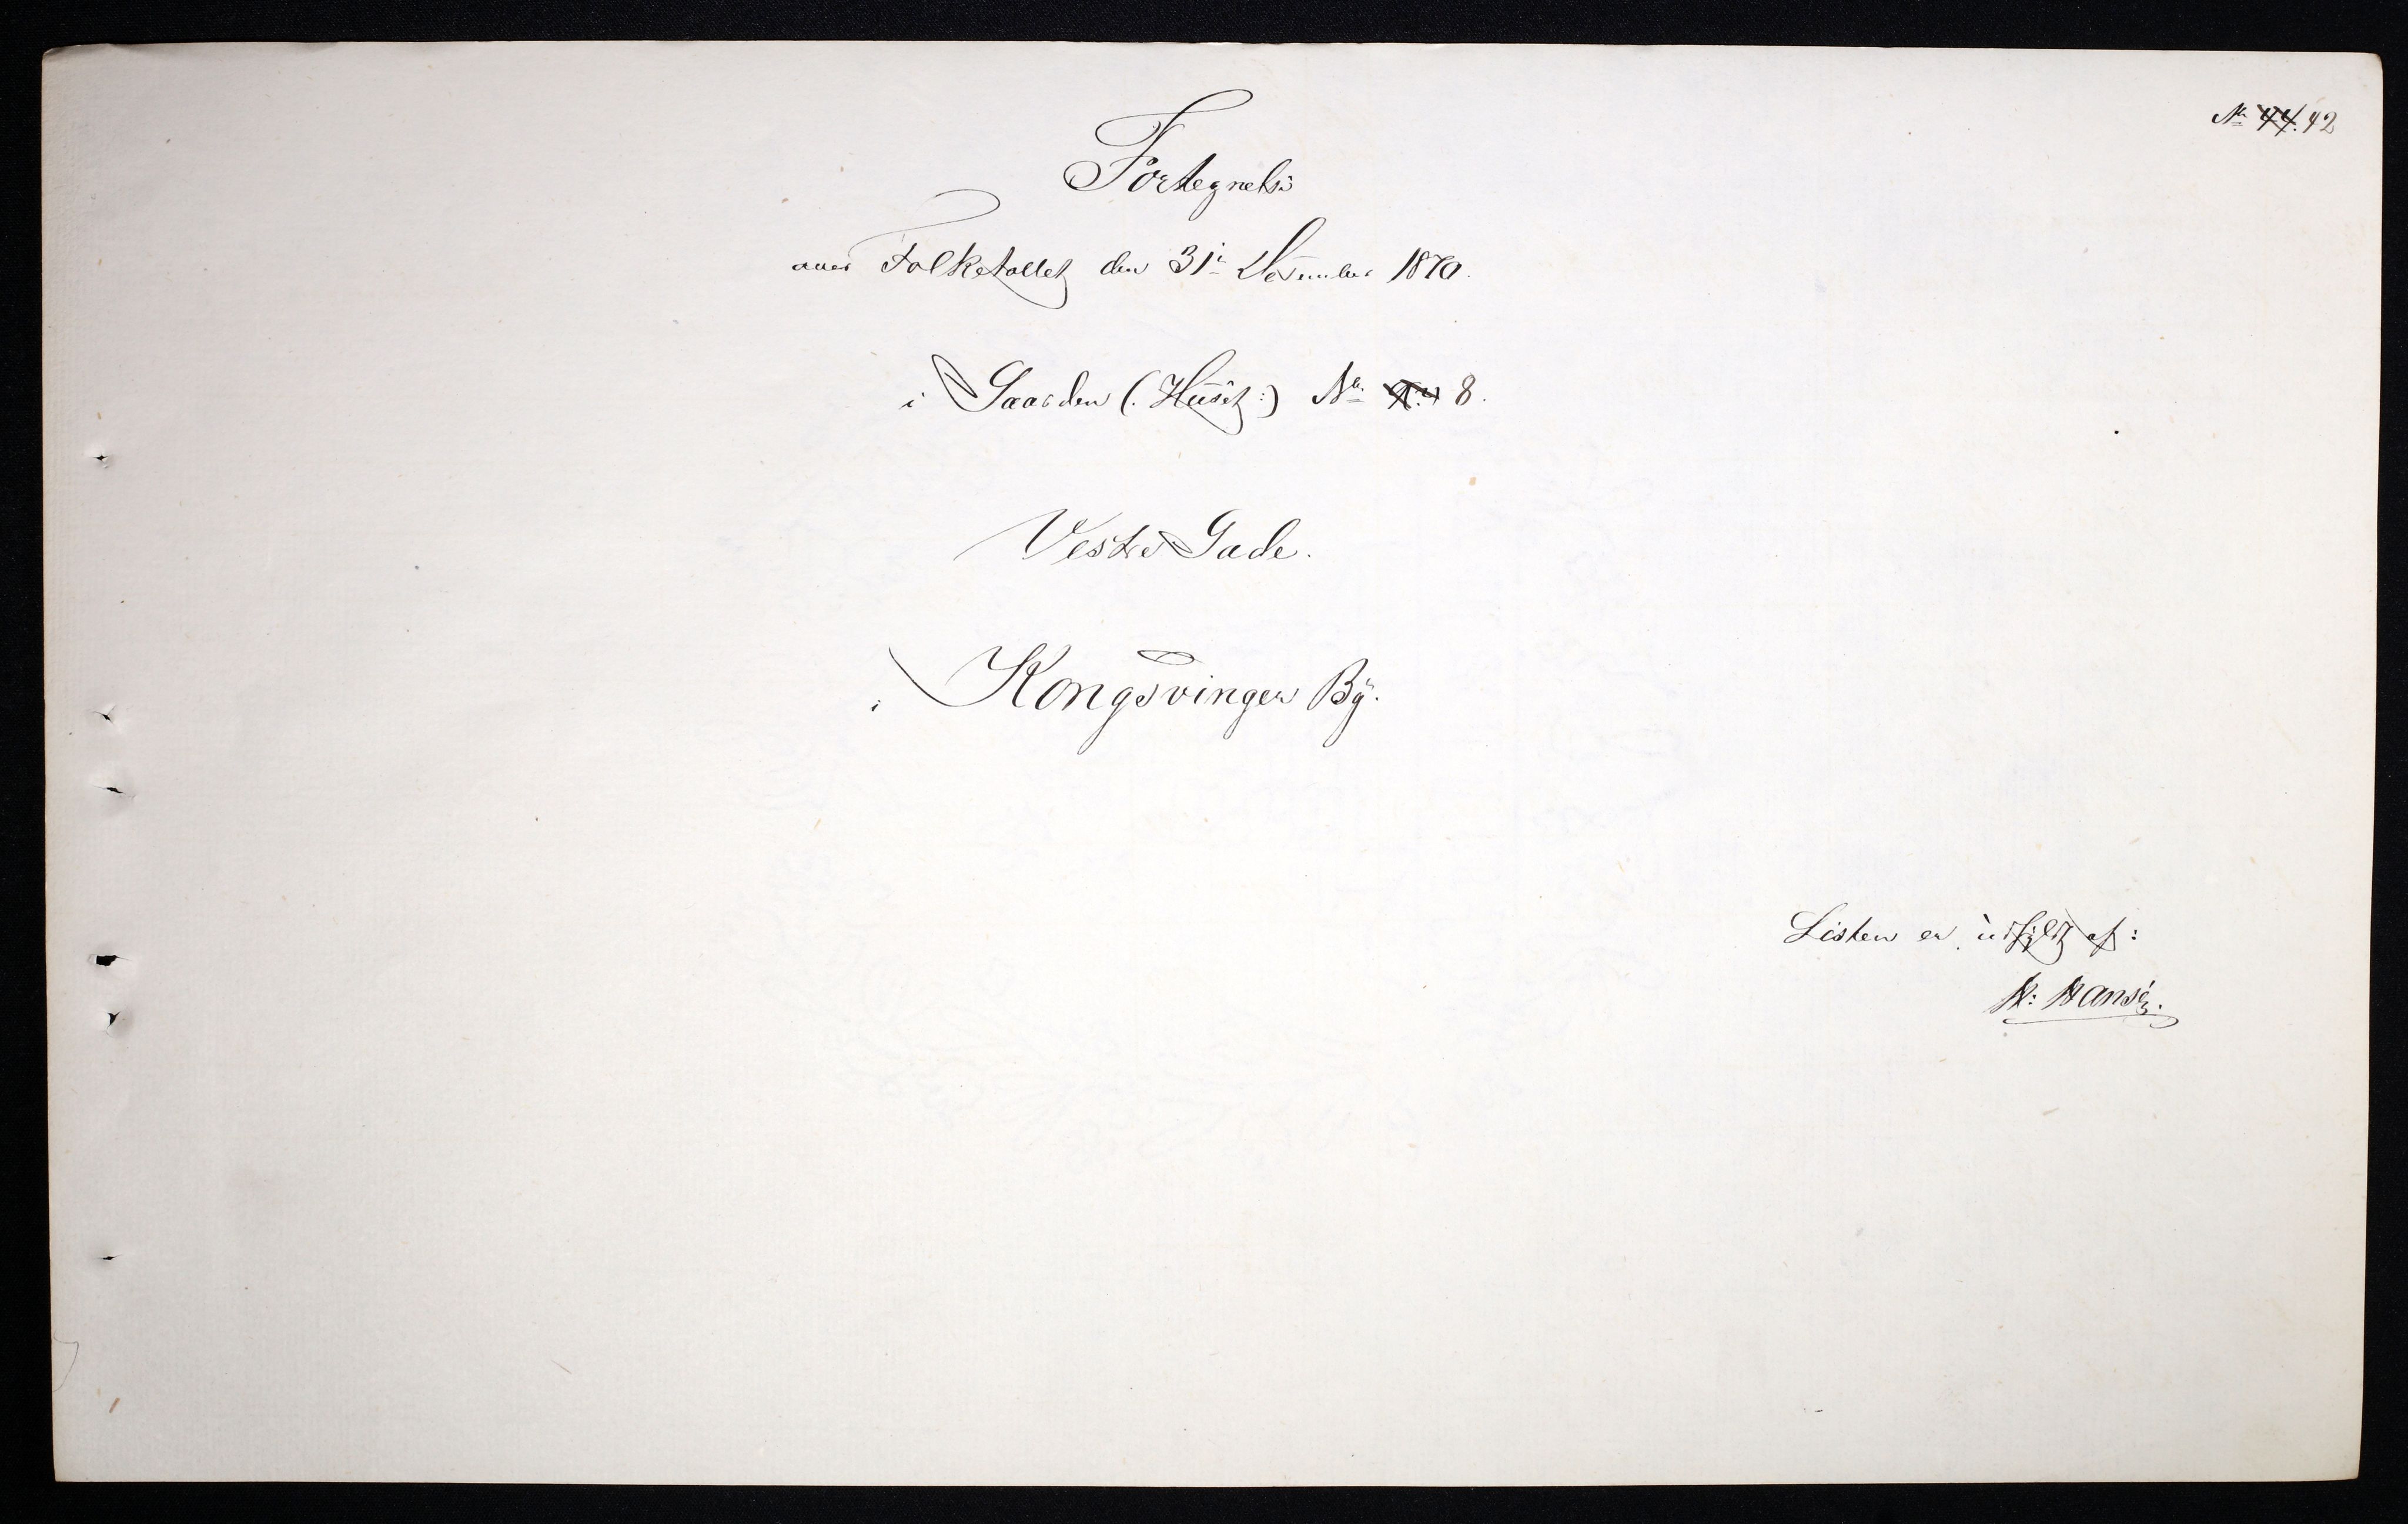 No 44. 42
Fortegnelse
over Folketallet den 31te December 1870.
i Gaarden (: Huset :) No 8.
Vestre Gade.
i Kongsvinger By.
Listen er udfyldt af:
H: Hansen.